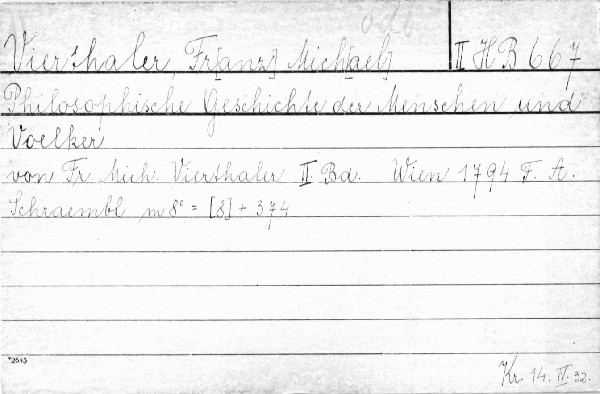 Vierthaler, Fr[anz] Mich[ael] II HB 667
Philosophische Geschichte der Menschen und
Voelker
von Fr. Mich. Vierthaler II. Bd. Wien 1794 F. A.
Schraembl m 8° = [8] + 374
*2513
Kr. 14. IV. 32.